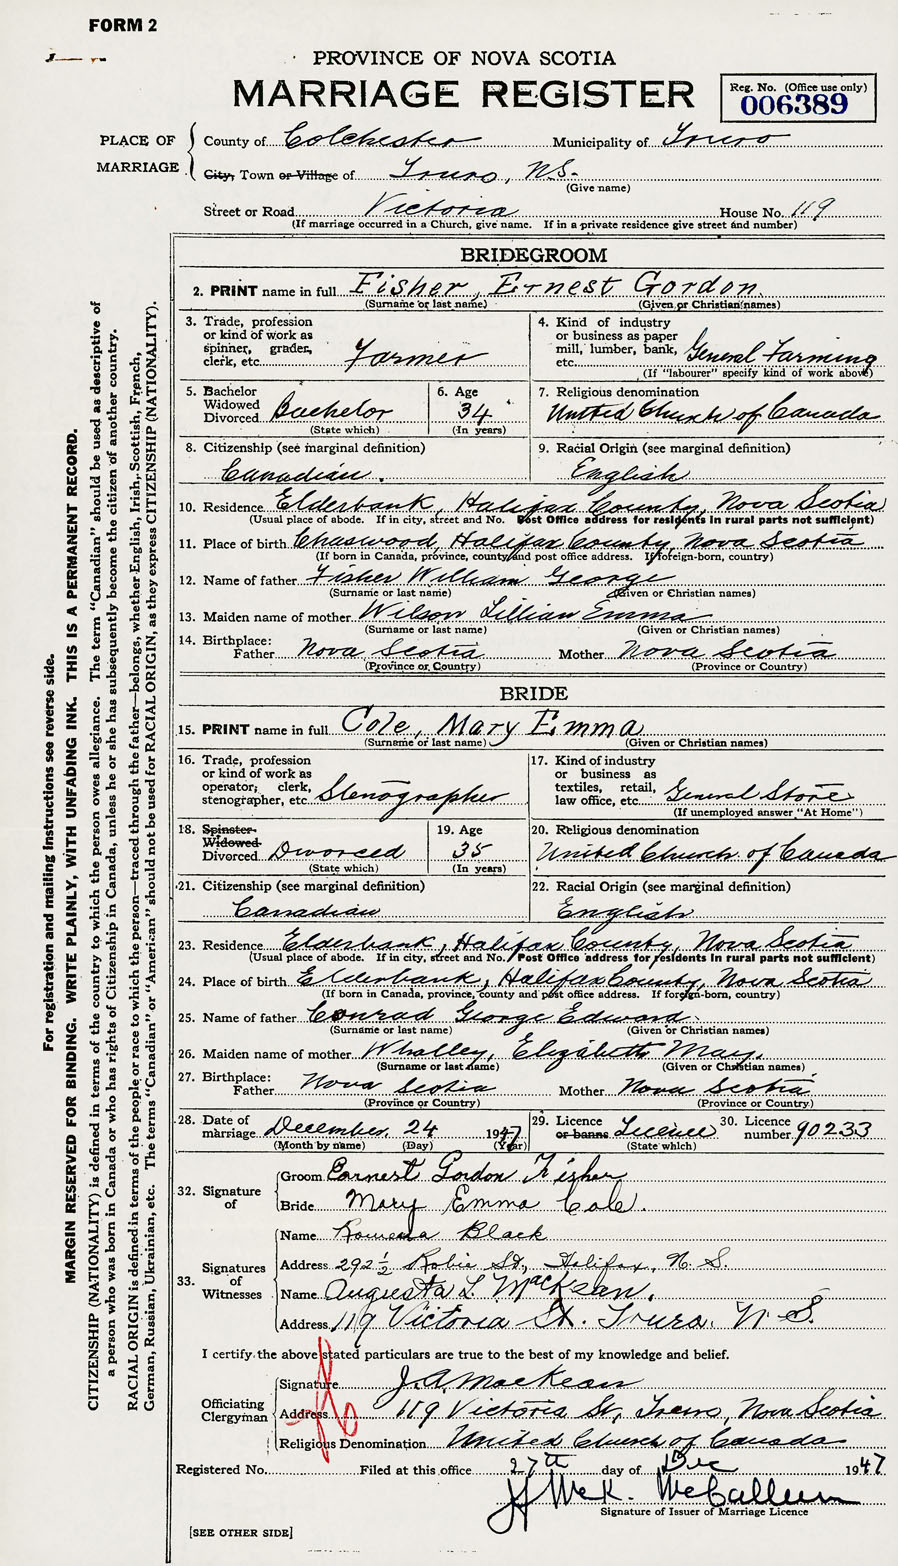 FORM 2
PROVINCE OF NOVA SCOTIA
MARRIAGE REGISTER
Reg. No. (Office use only)
006389
PLACE OF MARRIAGE
County of Colchester Municipality of Truro
City, Town or Village of Truro, N.S.
(Give name)
Street or Road Victoria House No. 119
(If marriage occurred in a Church, give name. If in a private residence give street and number)
BRIDEGROOM
2. PRINT name in full Fisher, Ernest Gordon.
(Surname or last name) (Given or Christian names)
3. Trade, profession or kind of work as spinner, grader, clerk, etc. Farmer
4. Kind of industry or business as paper mill, lumber, bank, etc. General Farming
(If "labourer" specify kind of work above)
5. Bachelor Widowed Divorced Bachelor
(State which)
6. Age 34
(In years)
7. Religious denomination
United Church of Canada
8. Citizenship (see marginal definition)
Canadian.
9. Racial Origin (see marginal definition)
English
10. Residence Elderbank, Halifax County, Nova Scotia
(Usual place of abode. If in city, street and No. Post Office address for residents in rural parts not sufficient)
11. Place of birth Chaswood, Halifax County, Nova Scotia
(If born in Canada, province, county and post office address. If foreign-born, country)
12. Name of father Fisher William George
(Surname or last name) (Given or Christian names)
13. Maiden name of mother Wilson Lillian Emma
(Surname or last name) (Given or Christian names)
14. Birthplace: Father Nova Scotia Mother Nova Scotia
(Province or Country) (Province or Country)
BRIDE
15. PRINT name in full Cole, Mary Emma
(Surname or last name) (Given or Christian names)
16. Trade, profession or kind of work as operator, clerk, stenographer, etc. Stenographer
17. Kind of industry or business as textiles, retail, law office, etc. General Store
(If unemployed answer "At Home")
18. Spinster Widowed Divorced Divorced
(State which)
19. Age 35
(In years)
20. Religious denomination
United Church of Canada
21. Citizenship (see marginal definition)
Canadian
22. Racial Origin (see marginal definition)
English
23. Residence Elderbank, Halifax County, Nova Scotia
(Usual place of abode. If in city, street and No. Post Office address for residents in rural parts not sufficient)
24. Place of birth Elderbank, Halifax County, Nova Scotia
(If born in Canada, province, county and post office address. If foreign-born, country)
25. Name of father Conrad George Edward.
(Surname or last name) (Given or Christian names)
26. Maiden name of mother Whalley, Elizabeth May.
(Surname or last name) (Given or Christian names)
27. Birthplace: Father Nova Scotia Mother Nova Scotia
(Province or Country) (Province or Country)
28. Date of marriage December 24 1947
(Month by name) (Day) (Year)
29. Licence or banns Licence
(State which)
30. Licence number 90233
32. Signature of
Groom Earnest Gordon Fisher
Bride Mary Emma Cole.
33. Signatures of Witnesses
Name Romena Black
Address 292½ Robie St., Halifax, N.S.
Name Augusta L. MacKean.
Address 119 Victoria St. Truro. N.S.
I certify the above stated particulars are true to the best of my knowledge and belief.
Officiating Clergyman
Signature J.A. MacKean
Address 119 Victoria St, Truro, Nova Scotia
Religious Denomination United Church of Canada
Registered No. Filed at this office 27th day of Dec 1947
McK. McCallum
Signature of Issuer of Marriage Licence
[SEE OTHER SIDE]
For registration and mailing instructions see reverse side.
MARGIN RESERVED FOR BINDING. WRITE PLAINLY, WITH UNFADING INK. THIS IS A PERMANENT RECORD.
CITIZENSHIP (NATIONALITY) is defined in terms of the country to which the person owes allegiance. The term "Canadian" should be used as descriptive of
a person who was born in Canada or who has rights of Citizenship in Canada, unless he or she has subsequently become the citizen of another country.
RACIAL ORIGIN is defined in terms of the people or race to which the person—traced through the father—belongs, whether English, Irish, Scottish, French,
German, Russian, Ukrainian, etc. The terms "Canadian" or "American" should not be used for RACIAL ORIGIN, as they express CITIZENSHIP (NATIONALITY).